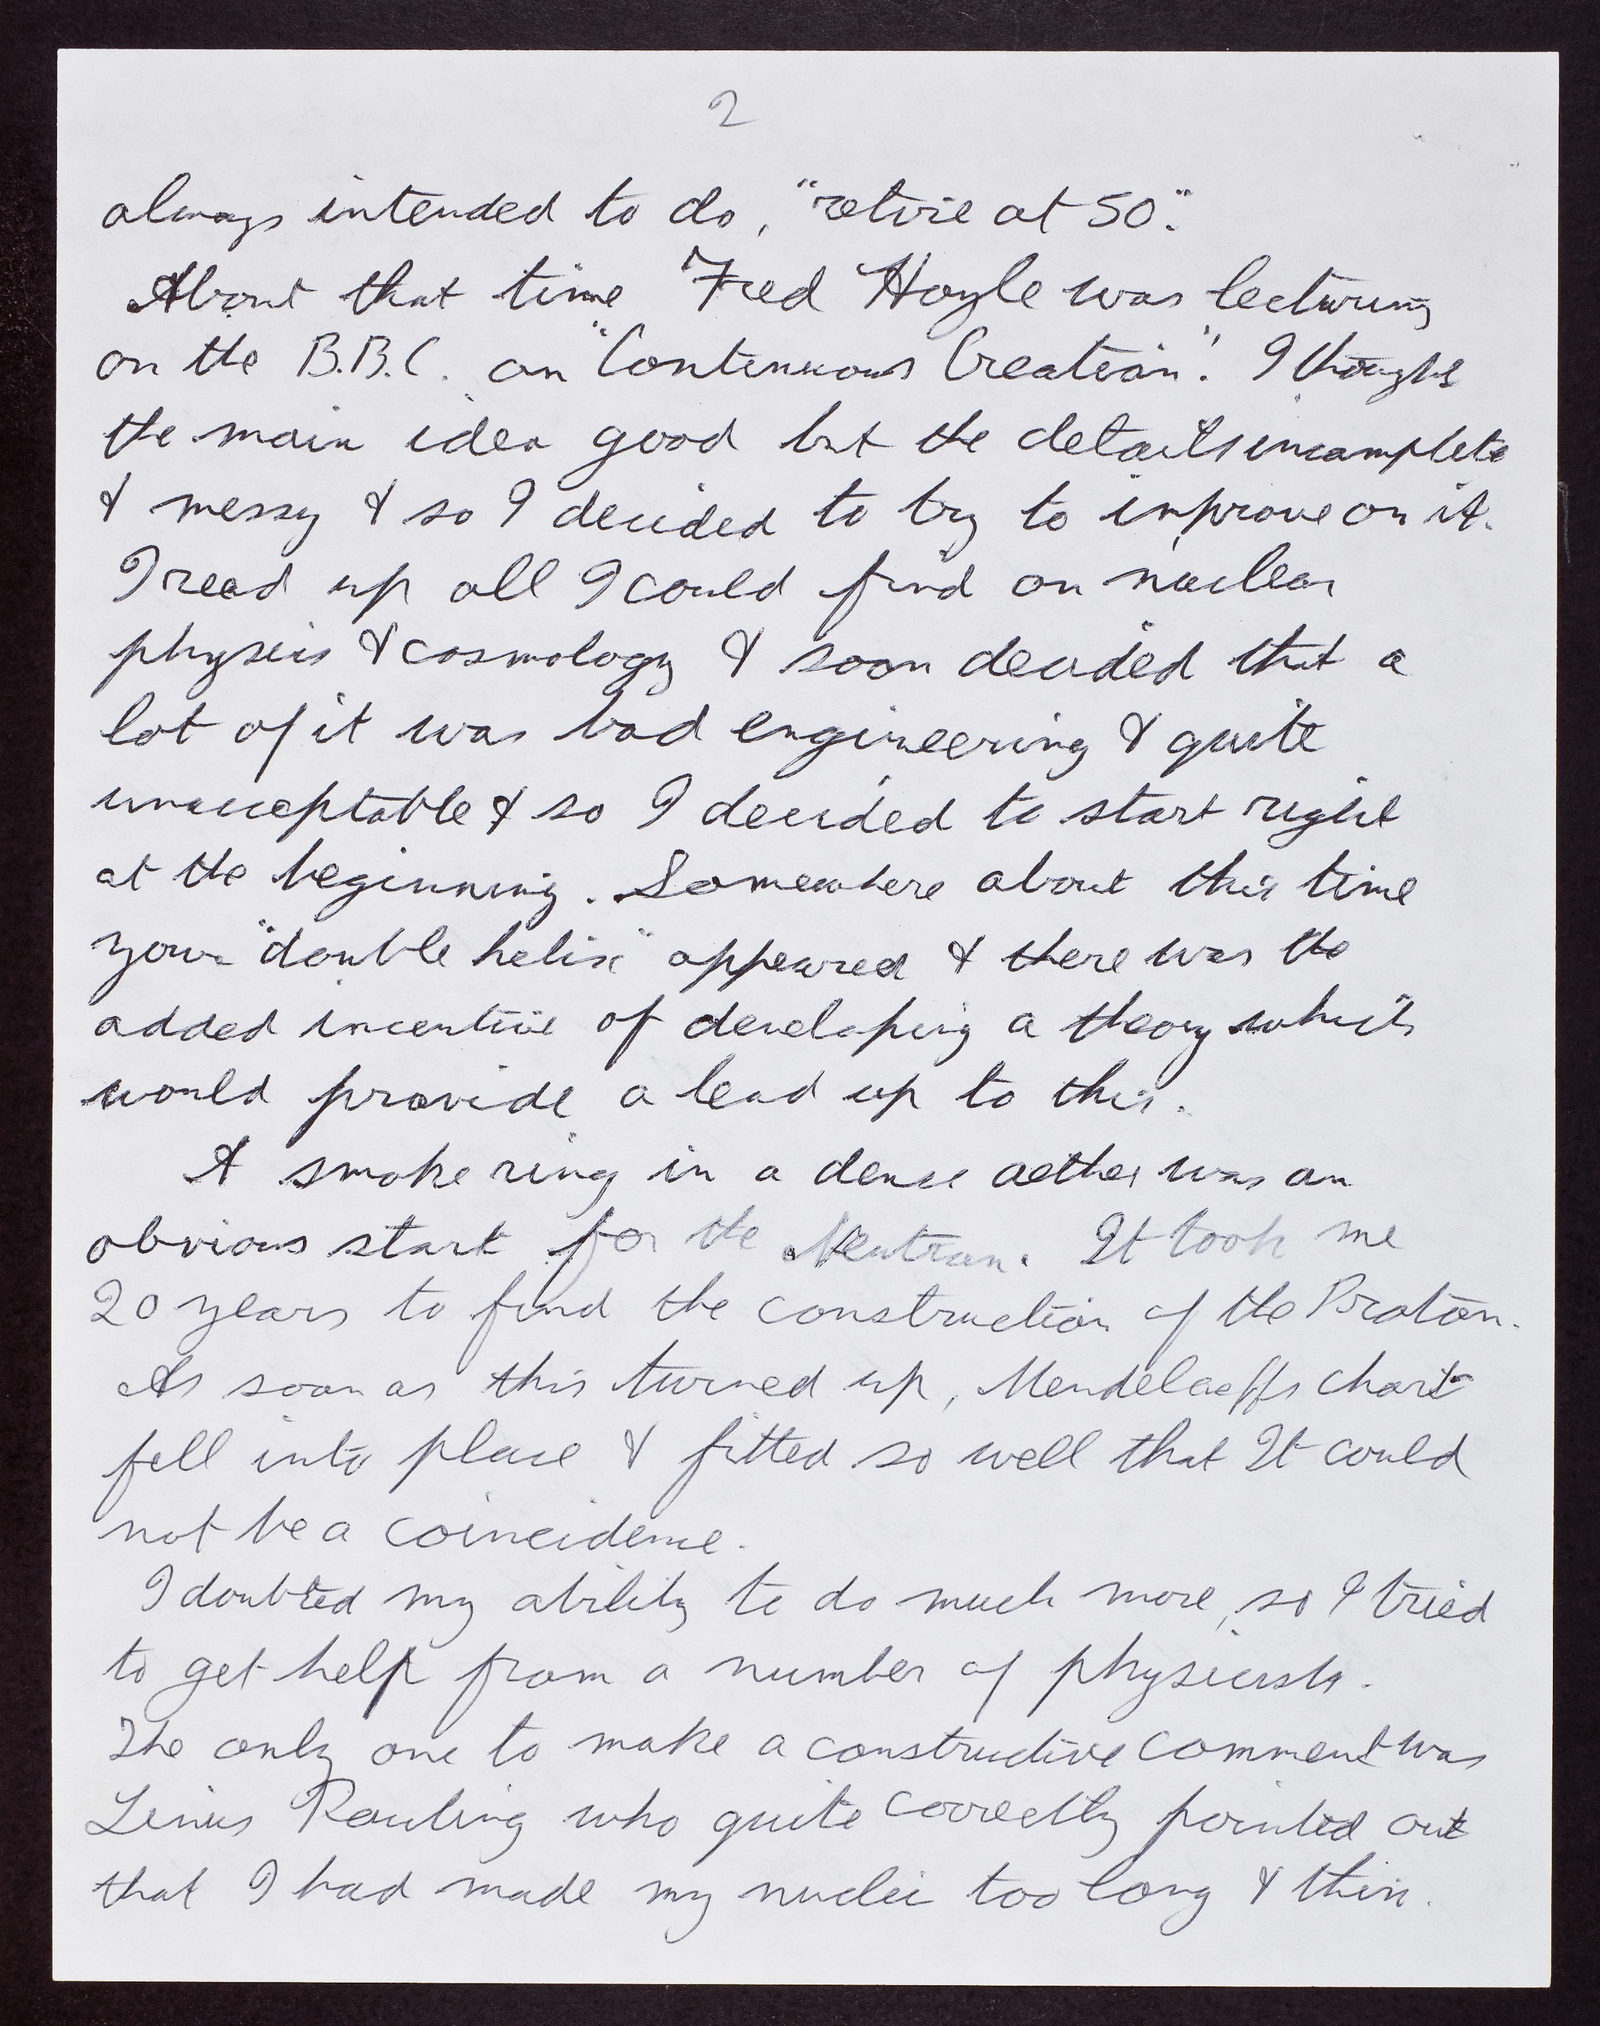 2
always intended to do, "retire at 50".
About that time Fred Hoyle was lecturing
on the B.B.C. on "Continuous Creation". I thought
the main idea good but the details incomplete
& messy & so I decided to try to improve on it.
I read up all I could find on nuclear
physics & cosmology & soon decided that a
lot of it was bad engineering & quite
unacceptable & so I decided to start right
at the beginning. Somewhere about this time
your "double helix" appeared & there was the
added incentive of developing a theory which
would provide a lead up to this.
A smoke ring in a dense aether was an
obvious start for the Neutron. It took me
20 years to find the construction of the Proton.
As soon as this turned up, Mendelaeffs chart
fell into place & fitted so well that It could
not be a coincidence.
I doubted my ability to do much more, so I tried
to get help from a number of physicists.
The only one to make a constructive comment was
Linus Pauling who quite correctly pointed out
that I had made my nuclei too long & thin.